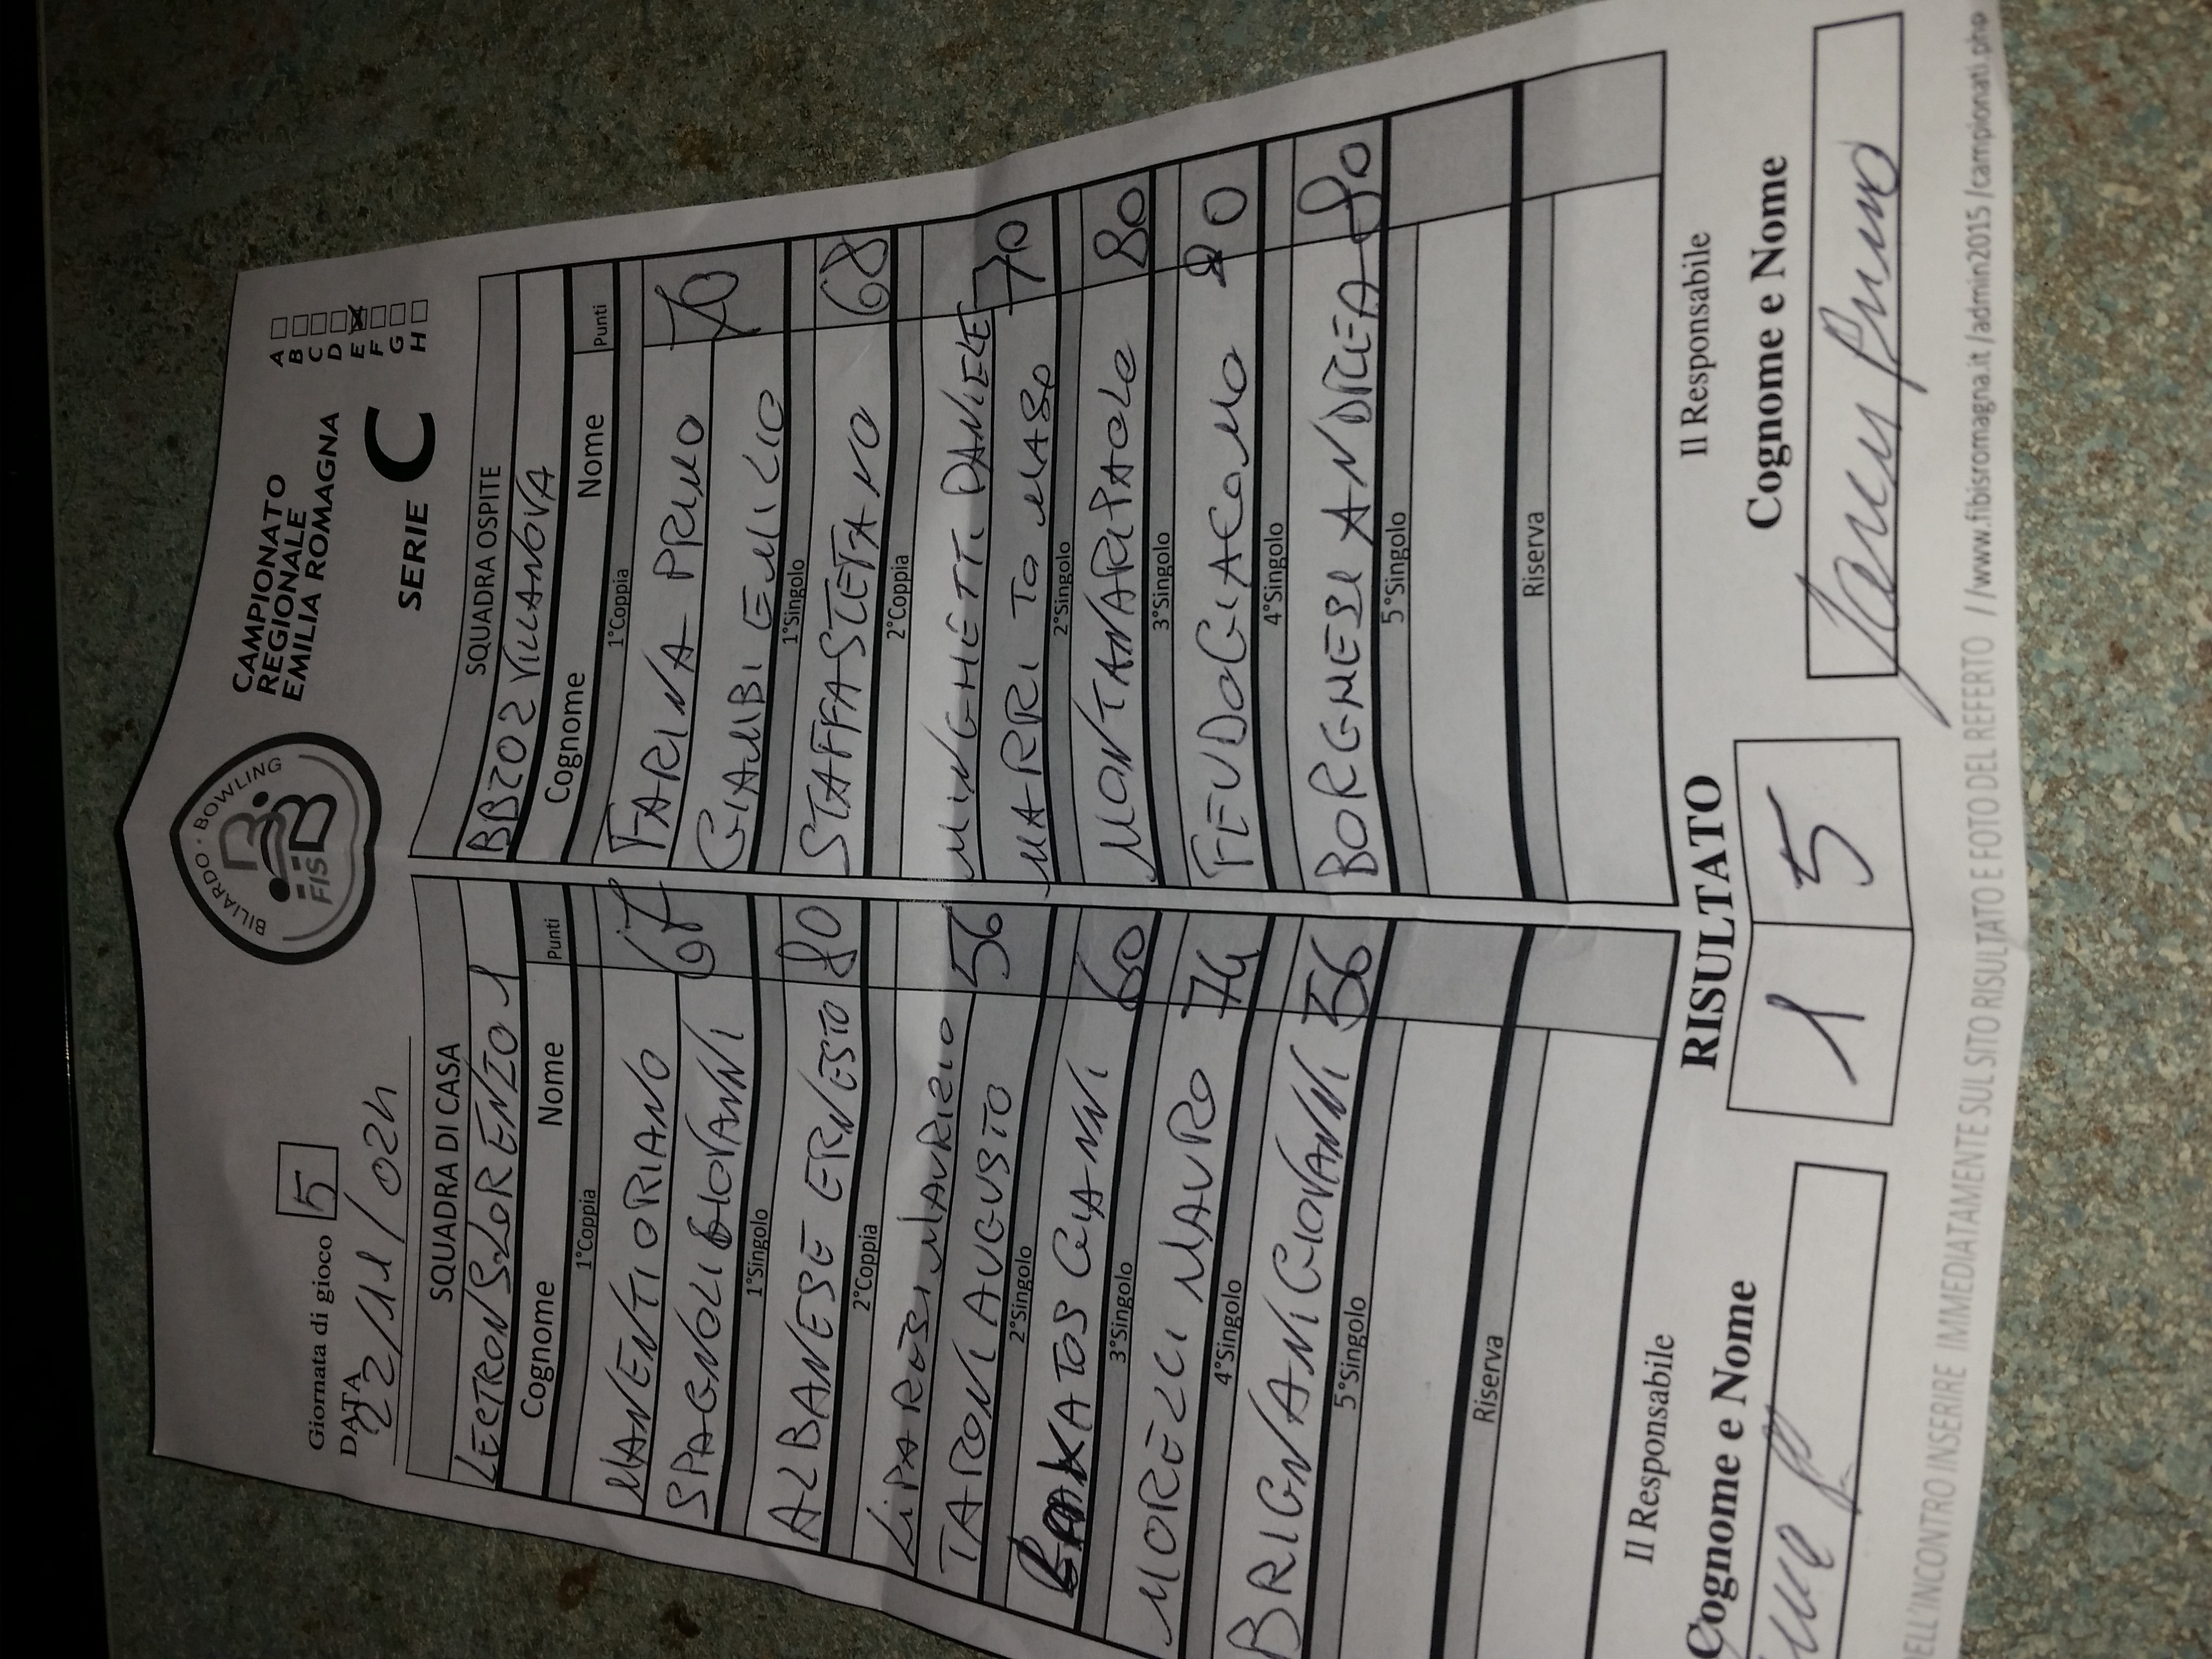 Giornata di gioco 5
DATA
22/11/024
BILIARDO · BOWLING
FIS
CAMPIONATO
REGIONALE
EMILIA ROMAGNA
SERIE C
A
B
C
D
E X
F
G
H
SQUADRA DI CASA
LECTRON S.LORENZO 1
Cognome Nome Punti
1°Coppia
MANENTI ORIANO 67
SPAGNOLI GIOVANNI
1°Singolo
ALBANESE ERNESTO 80
2°Coppia
LIPARESI MAURIZIO 56
TARONI AUGUSTO
2°Singolo
GIANNI 60
3°Singolo
MORELLI MAURO 74
4°Singolo
BRIGNANI GIOVANNI 56
5°Singolo
Riserva
SQUADRA OSPITE
BBZ02 VILLANOVA
Cognome Nome Punti
1°Coppia
FARINA PRIMO 70
GIAMBI EMILIO
1°Singolo
STAFFA STEFANO 68
2°Coppia
MINGHETTI DANIELE 70
MARRI TOMASO
2°Singolo
MONTANARI PAOLO 80
3°Singolo
FEUDO GIACOMO 80
4°Singolo
BORGHESI ANDREA 80
5°Singolo
Riserva
Il Responsabile
Cognome e Nome
RISULTATO
1 5
Il Responsabile
Cognome e Nome
DELL'INCONTRO INSERIRE IMMEDIATAMENTE SUL SITO RISULTATO E FOTO DEL REFERTO //www.fibisromagna.it /admin2015 /campionati.php